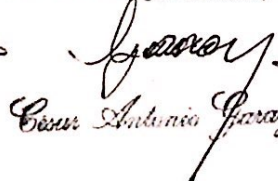 César Antonio Garay